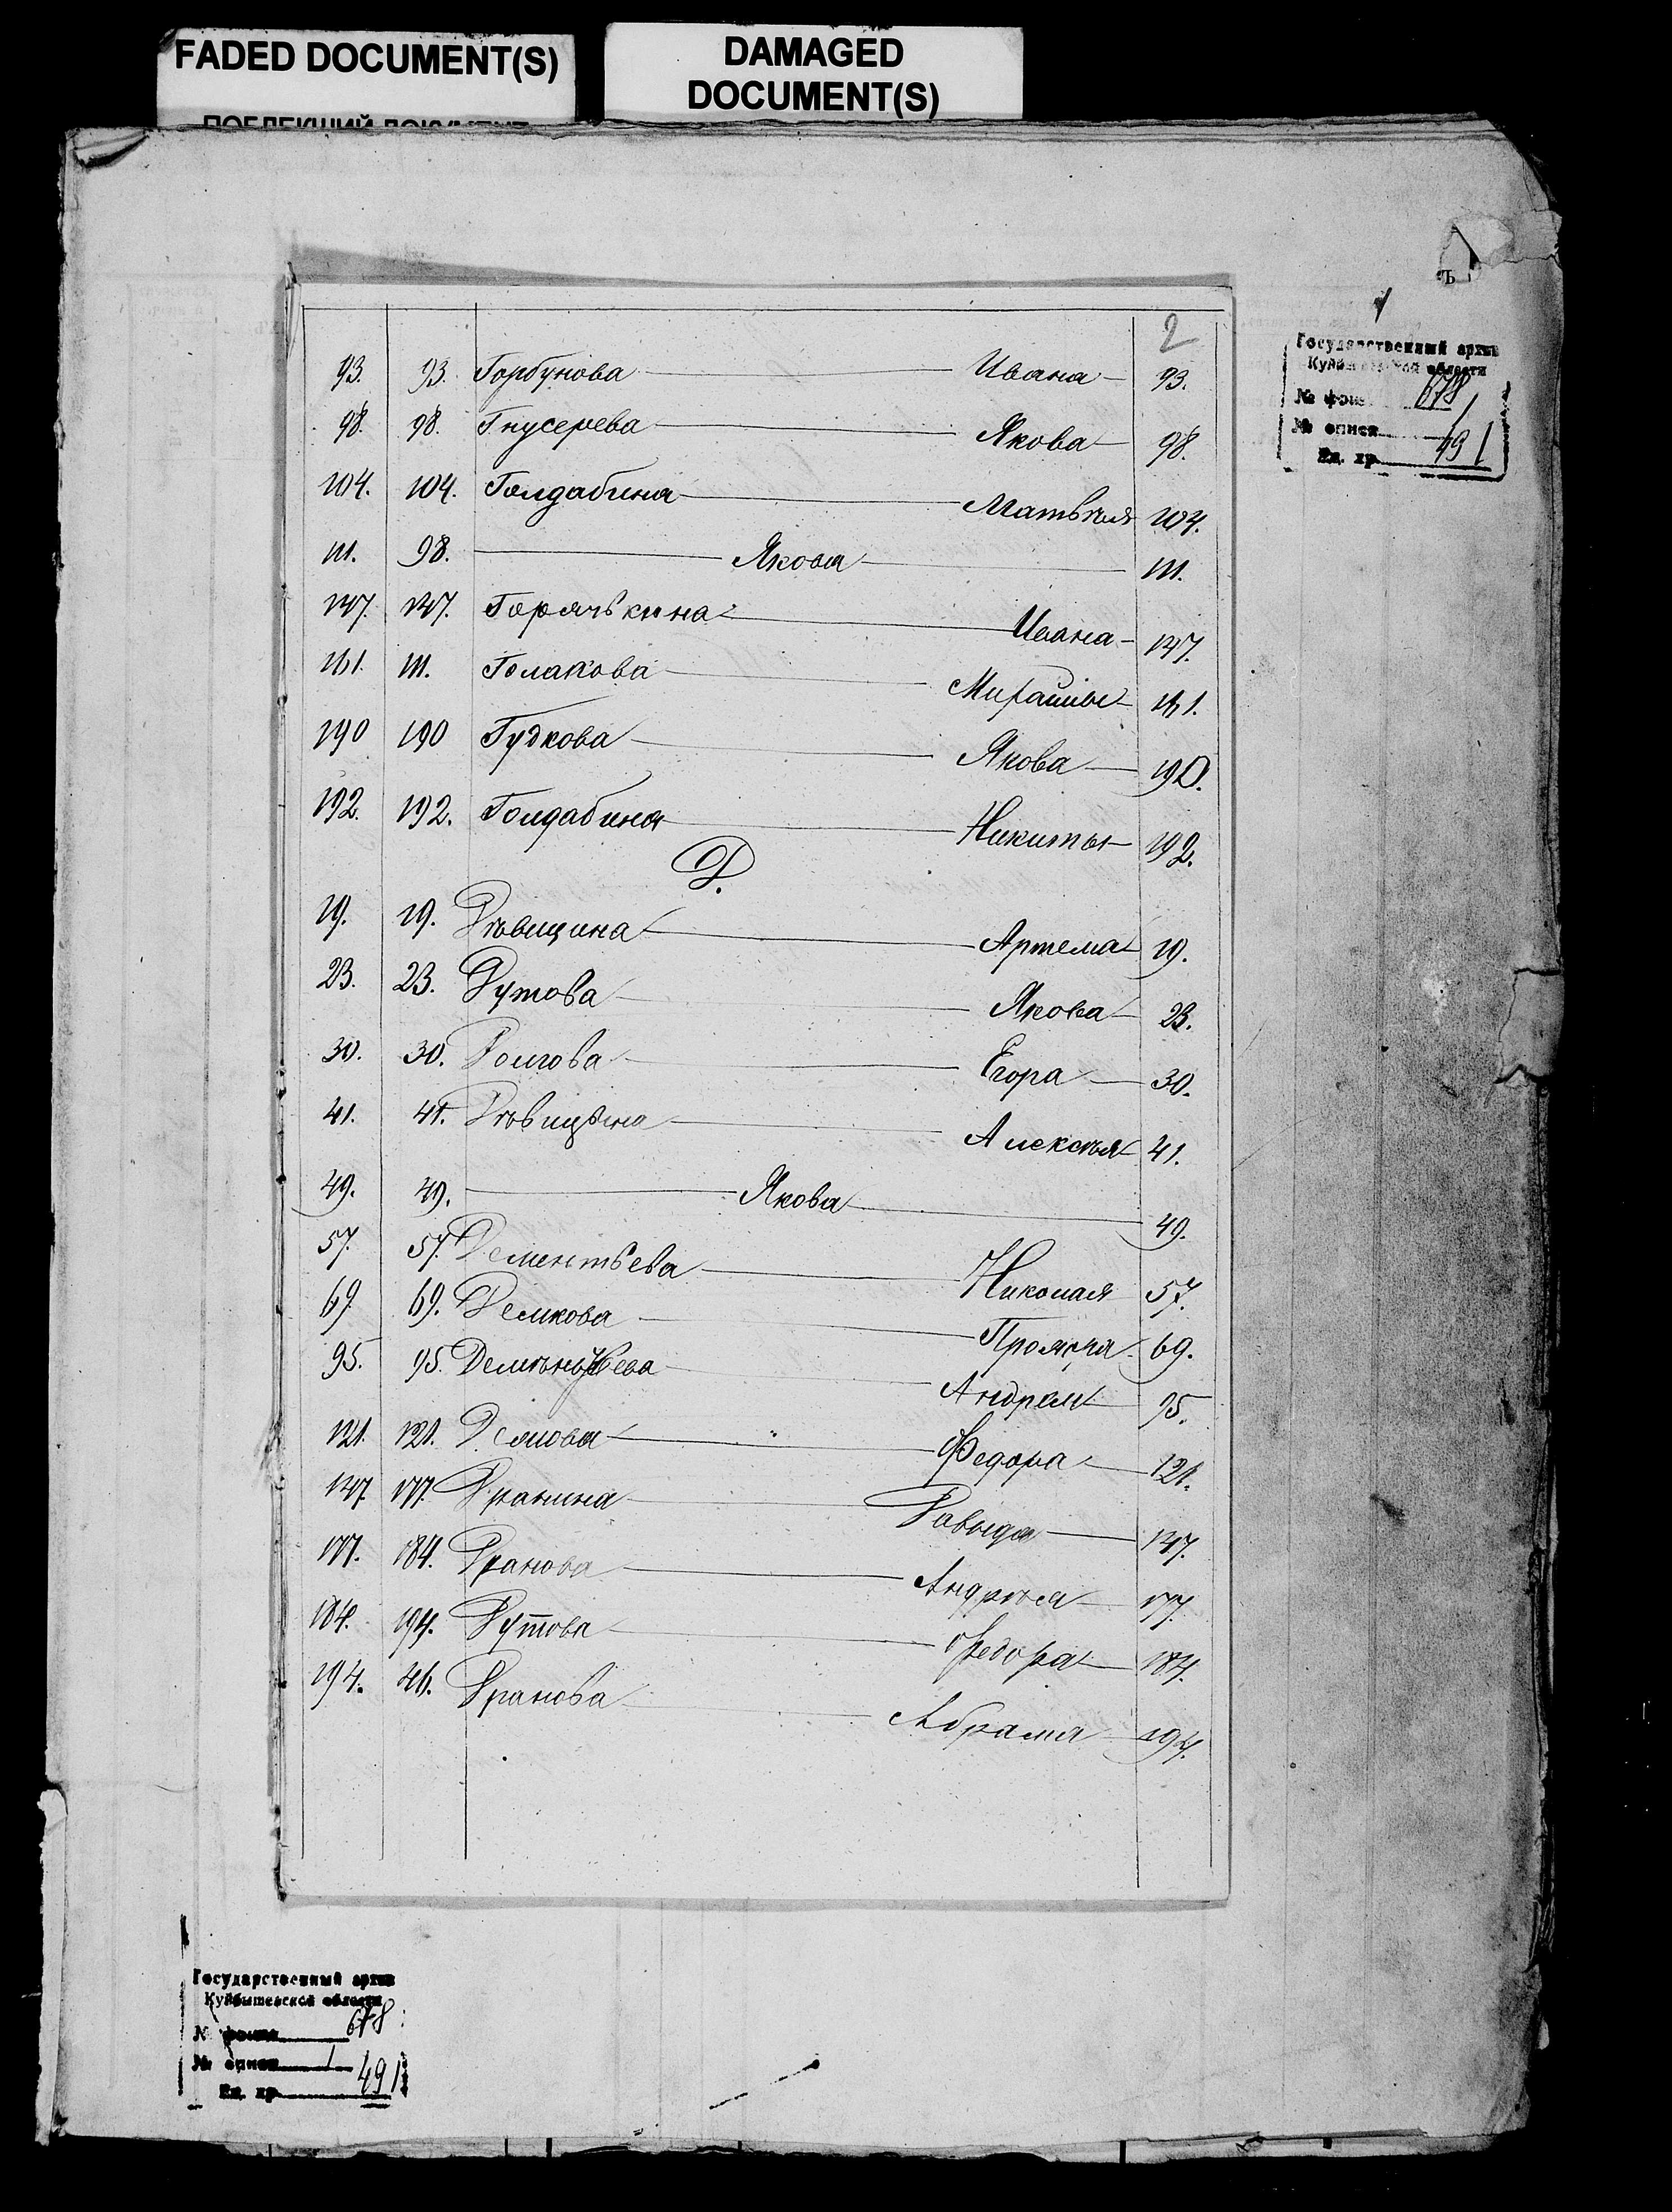 FADED DOCUMENT(S)
DAMAGED
DOCUMENT(S)
ПОБЛЕКШИЙ ДОКУМЕНТ
ъ
2
Государственный архив
Куйбышевской области
№ фонд 678
№ описи 1
Ед. хр. 491
93. 93. Горбунова Ивана 93.
98. 98. Гнусерева Якова 98.
104. 104. Голдабина Матвѣя 104.
111. 98. Якова 111.
147. 147. Горячькина Ивана 147.
161. 111. Голакова 161.
190 190 Гудкова Якова 190.
192. 192. Голдабина Никиты 192.
Д.
19. 19. Дѣвицина Артема 19.
23. 23. Дутова Якова 23.
30. 30. Долгова Егора 30.
41. 41. Дѣвицина Алексѣя 41.
49. 49. Якова 49.
57. 57. Дементьева Николая 57.
69 69. Демкова 69.
95. 95. Андрея 95.
121. 121. Федора 121.
147. 177. Дранина Давыда 147.
177. 184. Дранова Андрѣя 177.
184. 194. Дутова Федора 184.
194. 46. Дранова Абрама 194.
Государственный архив
Куйбышевской области
№ фонд 678
№ описи 1
Ед. хр. 491